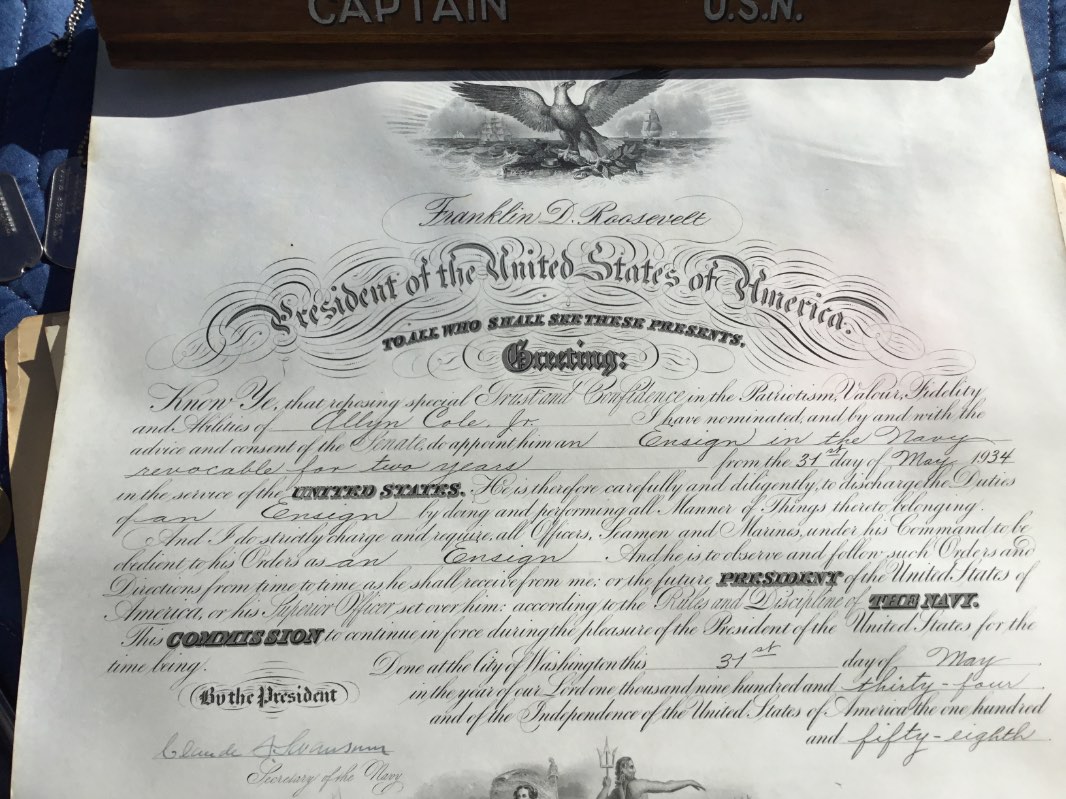 CAPTAIN U.S.N.
Franklin D. Roosevelt
President of the United States of America.
TO ALL WHO SHALL SEE THESE PRESENTS,
Greeting:
Know Ye, that reposing special Trust and Confidence in the Patriotism, Valour, Fidelity
and Abilities of Allyn Cole, Jr. I have nominated, and by and with the
advice and consent of the Senate, do appoint him an Ensign in the Navy
revocable for two years from the 31st day of May 1934
in the service of the UNITED STATES. He is therefore carefully and diligently, to discharge the Duties
of an Ensign by doing and performing all Manner of Things thereto belonging.
And I do strictly charge and require, all Officers, Seamen and Marines, under his Command to be
dedient to his Orders as an Ensign. And he is to observe and follow such Orders and
Directions from time to time as he shall receive from me; or the future PRESIDENT of the United States of
America, or his Superior Officer set over him; according to the Rules and Discipline of THE NAVY.
This COMMISSION to continue in force during the pleasure of the President of the United States for the
time being.
Done at the City of Washington this 31st day of May
By the President
in the year of our Lord one thousand nine hundred and thirty-four
and of the Independence of the United States of America the one hundred
and fifty-eighth.
Claude A. Swanson
Secretary of the Navy